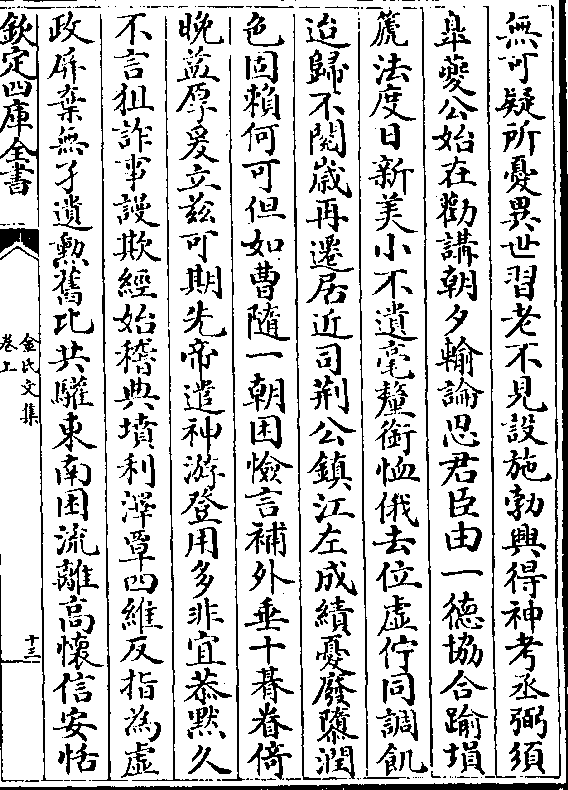 無可疑所憂異世習老不見設施勃興得神考丞弼須
臯夔公始在勸講朝夕輸論思君臣由一德協合踰塤
箎法度日新美小不遺毫釐銜恤俄去位虚佇同調飢
迨歸不閱嵗再遷居近司荆公鎮江左成績憂廢隳潤
色固頼何可但如曹隨一朝困憸言補外垂十朞眷倚
晚益厚爰立兹可期先帝遽神游登用多非宜恭黙久
不言狙詐事謾欺經始稽典墳利澤覃四維反指為虚
政屏棄無孑遺勲舊比共驩東南困流離高懷信安恬
欽定四庫全書
金氏文集
卷上
十三